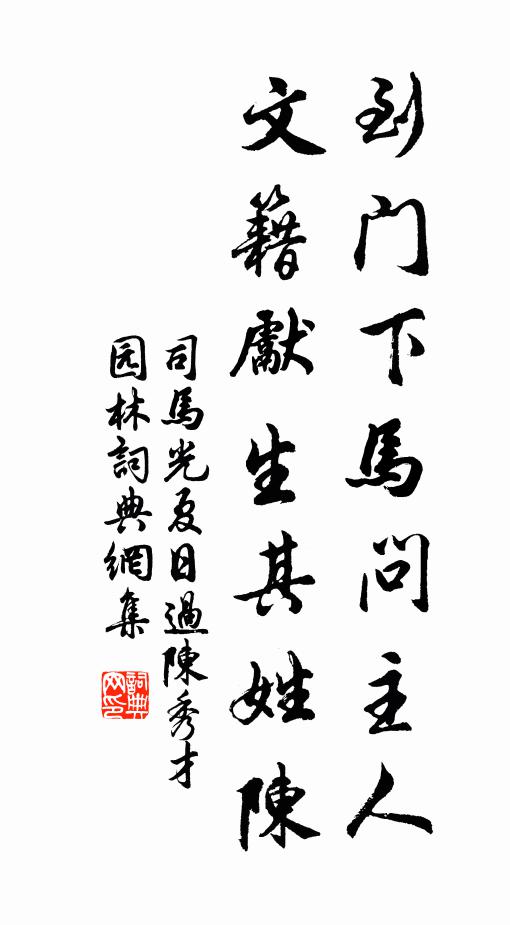 到门下馬問主人
文籍獻生其姓陳
司馬光夏日過陳秀才
园林詞典網集
詞典网印